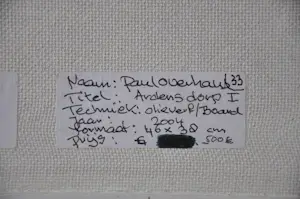 Naam: Paul overhaus 33
Titel: Ardens dorp I
Techniek: olieverf/Board
Jaar: 2004
Formaat: 40 x 30 cm
Prijs: € 500€